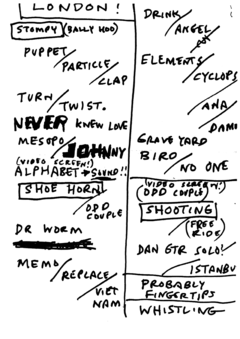 LONDON!
STOMPY (BALLY HOO)
PUPPET
PARTICLE
CLAP
TURN
TWIST.
NEVER KNEW LOVE
MESOPO
JOHNNY
(VIDEO SCREEN!)
ALPHABET → SOUND!!
SHOE HORN
ODD
COUPLE
DR WORM
MEMO
REPLACE
VIET
NAM
DRINK
ANGEL
ELEMENTS
CYCLOPS
ANA
DAMN
GRAVE YARD
BIRD
NO ONE
(VIDEO SCREEN!)
(ODD COUPLE)
SHOOTING
(FREE
RIDE)
DAN GTR SOLO!
ISTANBU
PROBABLY
FINGERTIPS
WHISTLING